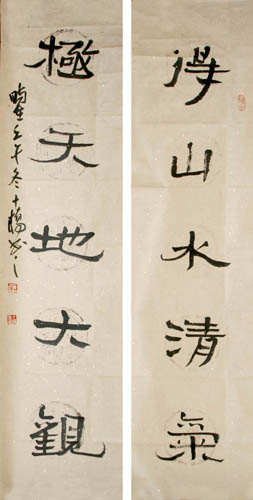 得山水清氣
極天地大觀
壬午冬